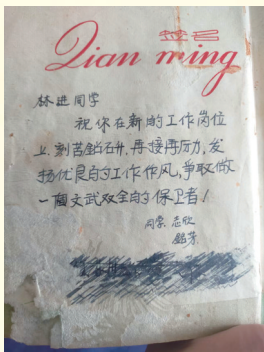 签名
Qian ming
林进同学
祝你在新的工作岗位
上,刻苦鉆研,再接再励,发
扬优良的工作作风,争取做
一個文武双全的保卫者!
同学 志欣